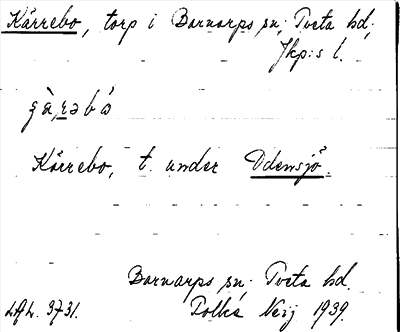 Kärrebo, torp i Barnarps sn; Tveta hd;
Jkp:s l.
Kärrebo, t. under Odensjö.
Barnarps sn; Tveta hd.
LAL. 3731. Polke Neij 1939.